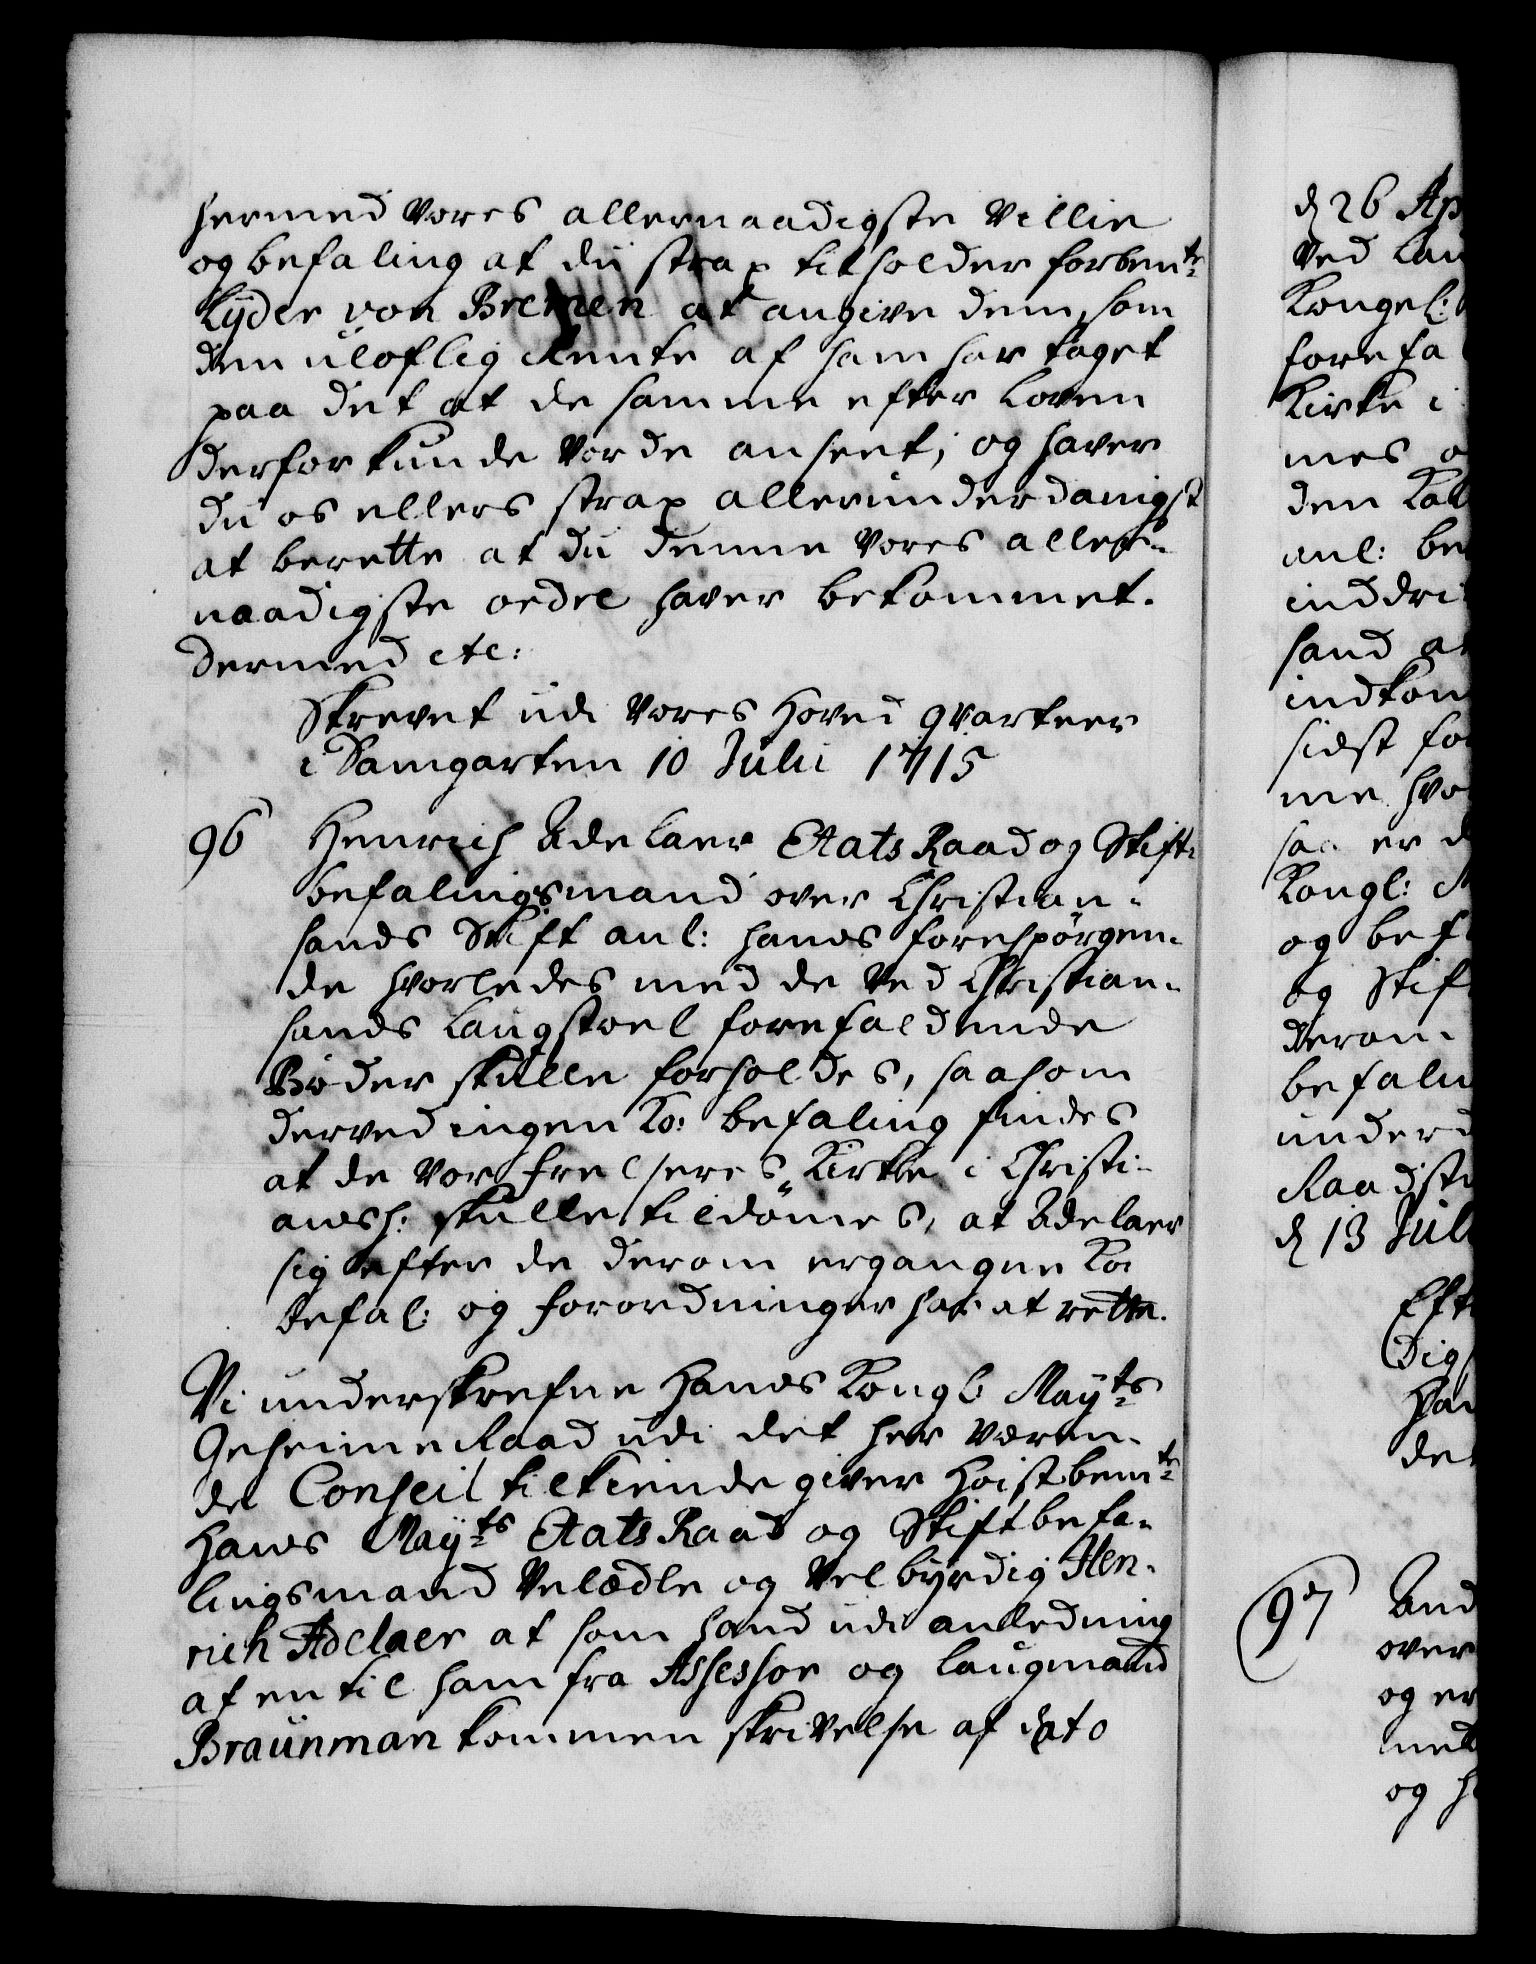 hermed Vores allernaadigste Villie
og befaling at du strax tilholder forbem.te
Lyder von Bremen at angive dem, som
dem uloflig Rente af ham har taget
paa det at de samme efter Loven
derfor kunde Vorde anseet; og haver
du os ellers strax allerunderdanigst
at berette at du denne Vores aller-
naadigste ordre haver bekommet.
Dermed etc:
Skrevet udi Vores Hoved qvarteer
i Damgarten 10 Julii 1715
96 Henrich Adelaer Etats Raad og Stift-
befalingsmand over Christian-
sands Stift anl: hands forespørgen-
de hvorledes med de Ved Christian-
sands Laugstoel forefaldende
Bøder skulle forholdes, saasom
derved ingen Ko: befaling findes
at de Vor frelseres Kirke i Christi-
ansh: skulle tildømes, at Adelaer
sig efter de derom ergangne Ko:
befal: og forordninger har at rette.
Vi underskrefne Hands Kongl Mayts
Geheime Raad udi det her væren-
de Conseil tilkiende giver Høistbemte
Hands Mayts Etats Raad og Stiftbefa-
lingsmand Velædle og Velbyrdig Hen-
rich Adelaer at som hand udi anledning
af en til ham fra Assessor og Laugmand
Braunman kommen skrivelse af dato
d 26 Ap
Ved Lau
Kongel:
forefa
Kirke i
mes o
den Kal
anl: be
inddri
hand at
indkom
sidst fo
me hvo
saa er d
Kongl: M
og bef
og Stif
derom-
befalin
underd
Raadst
d 13 Jul
Eft
Dig
Han
det
97 And
over
og er
med
og h